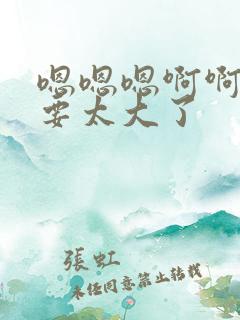 嗯嗯嗯啊啊
要太大了
張虹
未经同意禁止转载